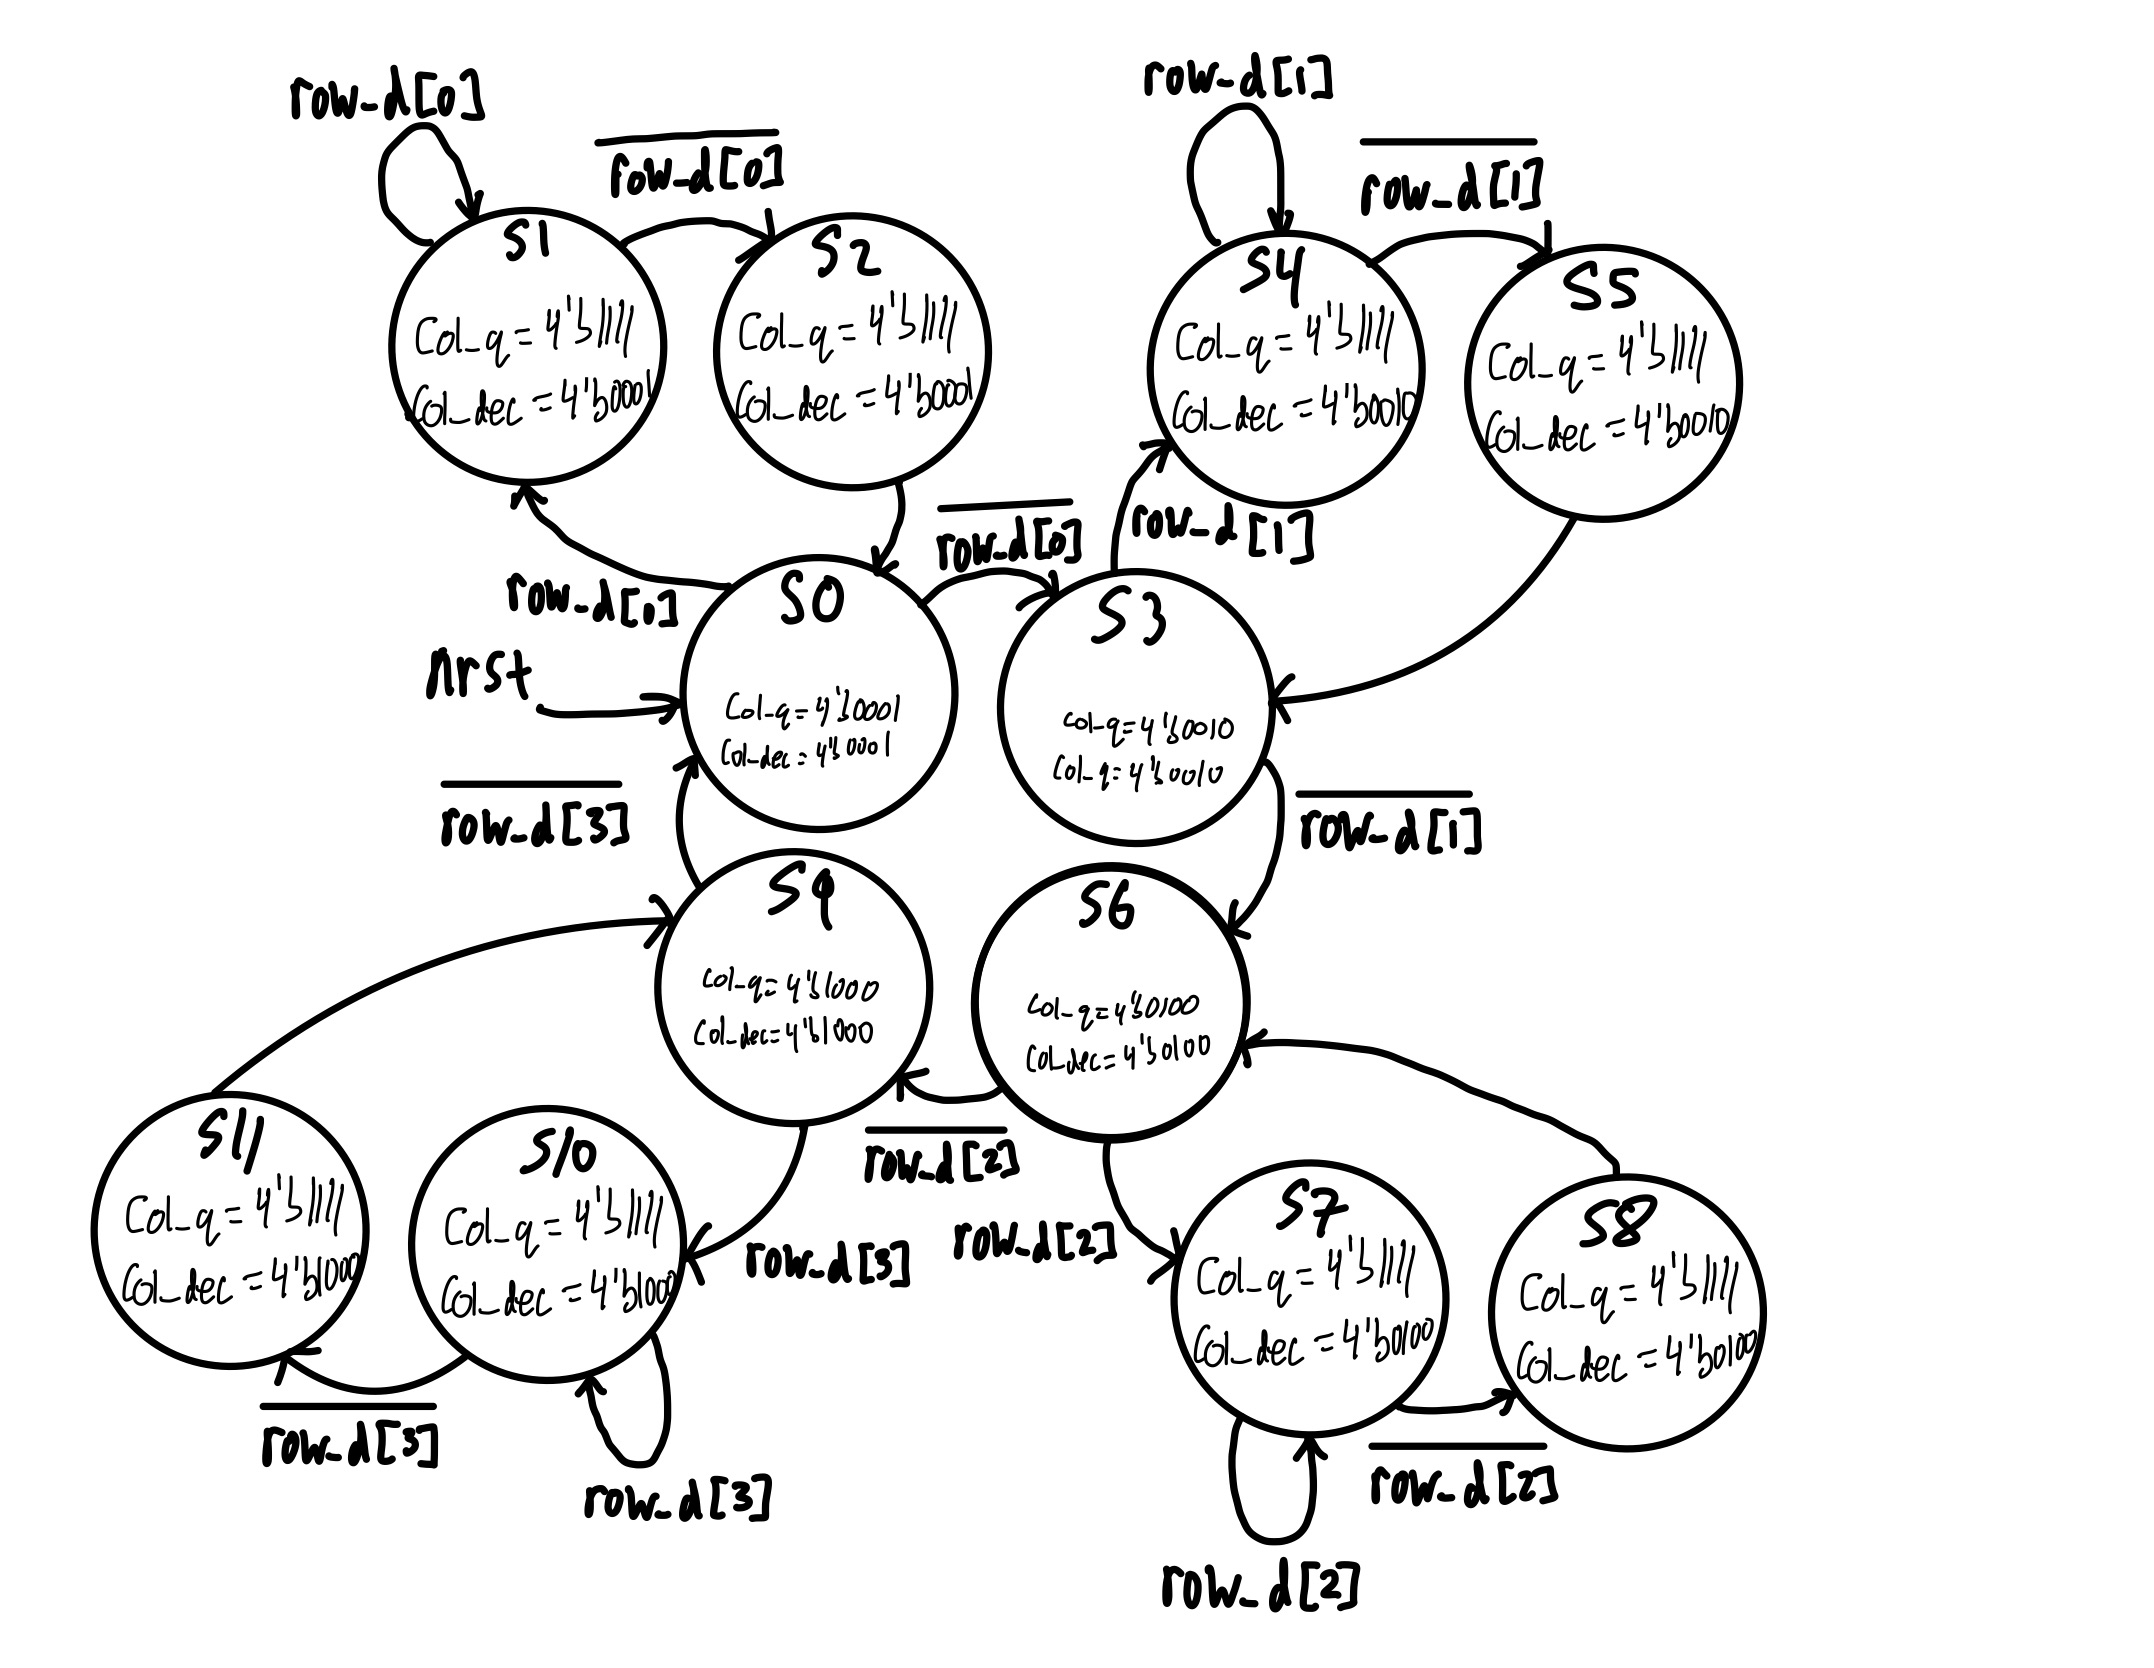 row_d[0]
row_d[0]
S1
Col_q = 4'b1111
Col_dec = 4'b0001
S2
Col_q = 4'b1111
Col_dec = 4'b0001
row_d[1]
row_d[1]
S4
Col_q = 4'b1111
Col_dec = 4'b0010
S5
Col_q = 4'b1111
Col_dec = 4'b0010
row_d[0]
row_d[0]
row_d[1]
nrst
S0
Col_q = 4'b0001
Col_dec = 4'b0001
S3
Col_q = 4'b0010
Col_q = 4'b0010
row_d[3]
row_d[1]
S9
Col_q = 4'b1000
Col_dec = 4'b1000
S6
Col_q = 4'b0100
Col_dec = 4'b0100
S11
Col_q = 4'b1111
Col_dec = 4'b1000
S10
Col_q = 4'b1111
Col_dec = 4'b1000
row_d[2]
row_d[3]
row_d[2]
S7
Col_q = 4'b1111
Col_dec = 4'b0100
S8
Col_q = 4'b1111
Col_dec = 4'b0100
row_d[3]
row_d[3]
row_d[2]
row_d[2]